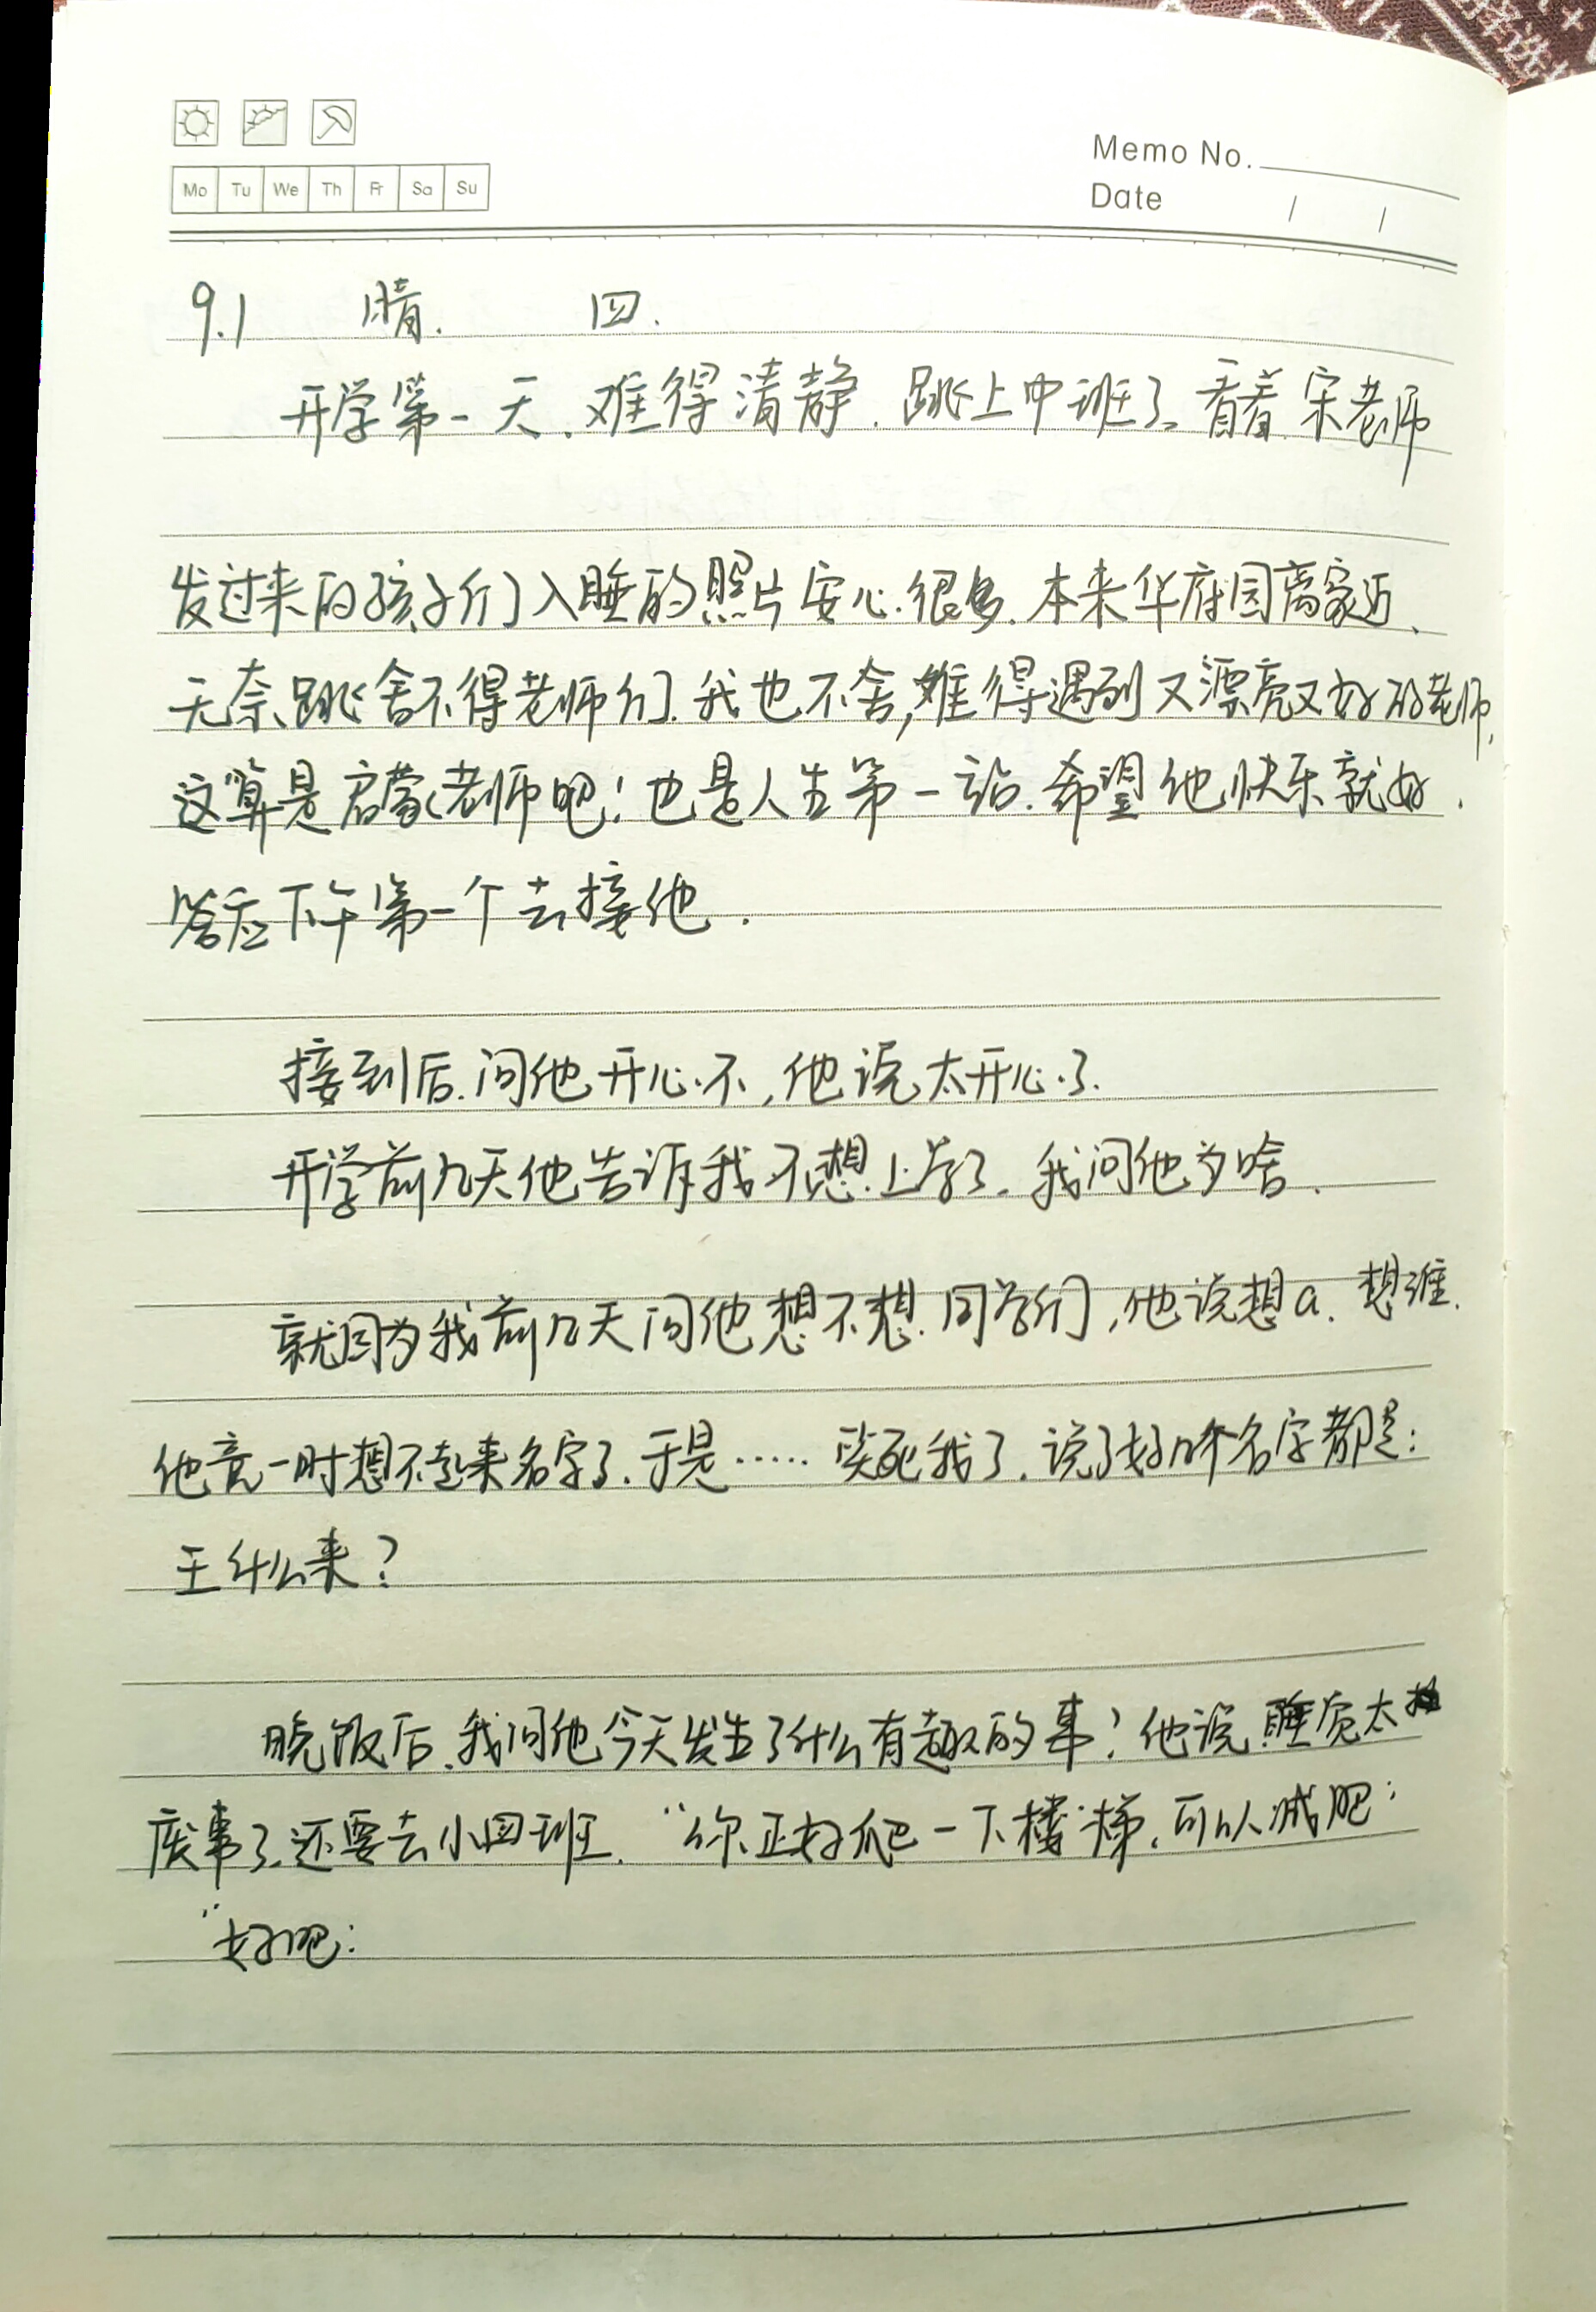 Mo Tu We Th Fr Sa Su
Memo No.
Date / /
9.1 晴. 四.
开学第一天、难得清静.跳上中班了。看着宋老师
发过来的孩子们入睡的照片安心很多.本来华府园离家近、
无奈跳舍不得老师们.我也不舍,难得遇到又漂亮又好的老师,
这算是启蒙老师吧!也是人生第一站.希望他快乐就好.
答应下午第一个去接他.
接到后.问他开心不,他说太开心了.
开学前几天他告诉我不想上学了。我问他为啥.
就因为我前几天问他想不想同学们,他说想a.想谁.
他竟一时想不起来名字了.于是……笑死我了.说了好几个名字都是:
王什么来?
晚饭后.我问他今天发生了什么有趣的事?他说睡觉太
废事了.还要去小四班.“你正好爬一下楼梯,可以减肥:
“好吧:
择选